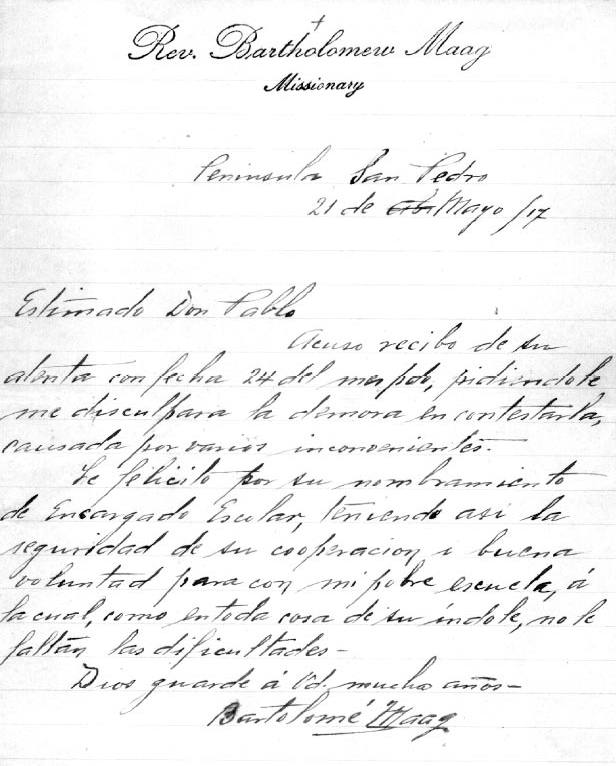 Rev. Bartholomew Maag
Missionary
Peninsula San Pedro
21 de Mayo /17
Estimado Don Pablo
Acuso recibo de su
atenta con fecha 24 del mes pdo, pidiendole
me disculpara la demora en contestarla,
causada por varios inconvenientes.
Le felicito por su nombramiento
de Encargado Escular, teniendo asi la
seguridad de su cooperacion i buena
voluntad para con mi pobre escuela, á
la cual, como en toda cosa de su índole, no le
faltan las dificultades-
Dios guarde á Ud. mucho años-
Bartolomé Maag